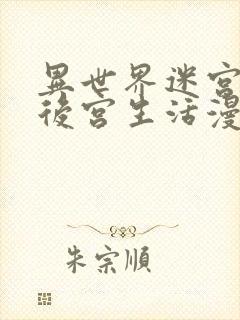 異世界迷宮
後宮生活漫
朱宗順